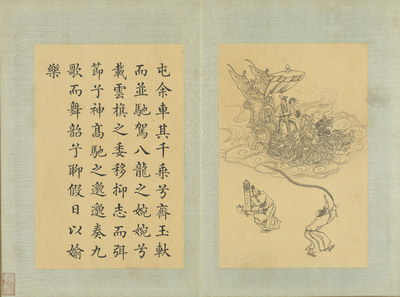 屯余車其千乘兮齊玉軑
而並馳駕八龍之婉婉兮
載雲旗之委移抑志而弭
節兮神髙馳之邈邈奏九
歌而舞韶兮聊假日以媮
樂